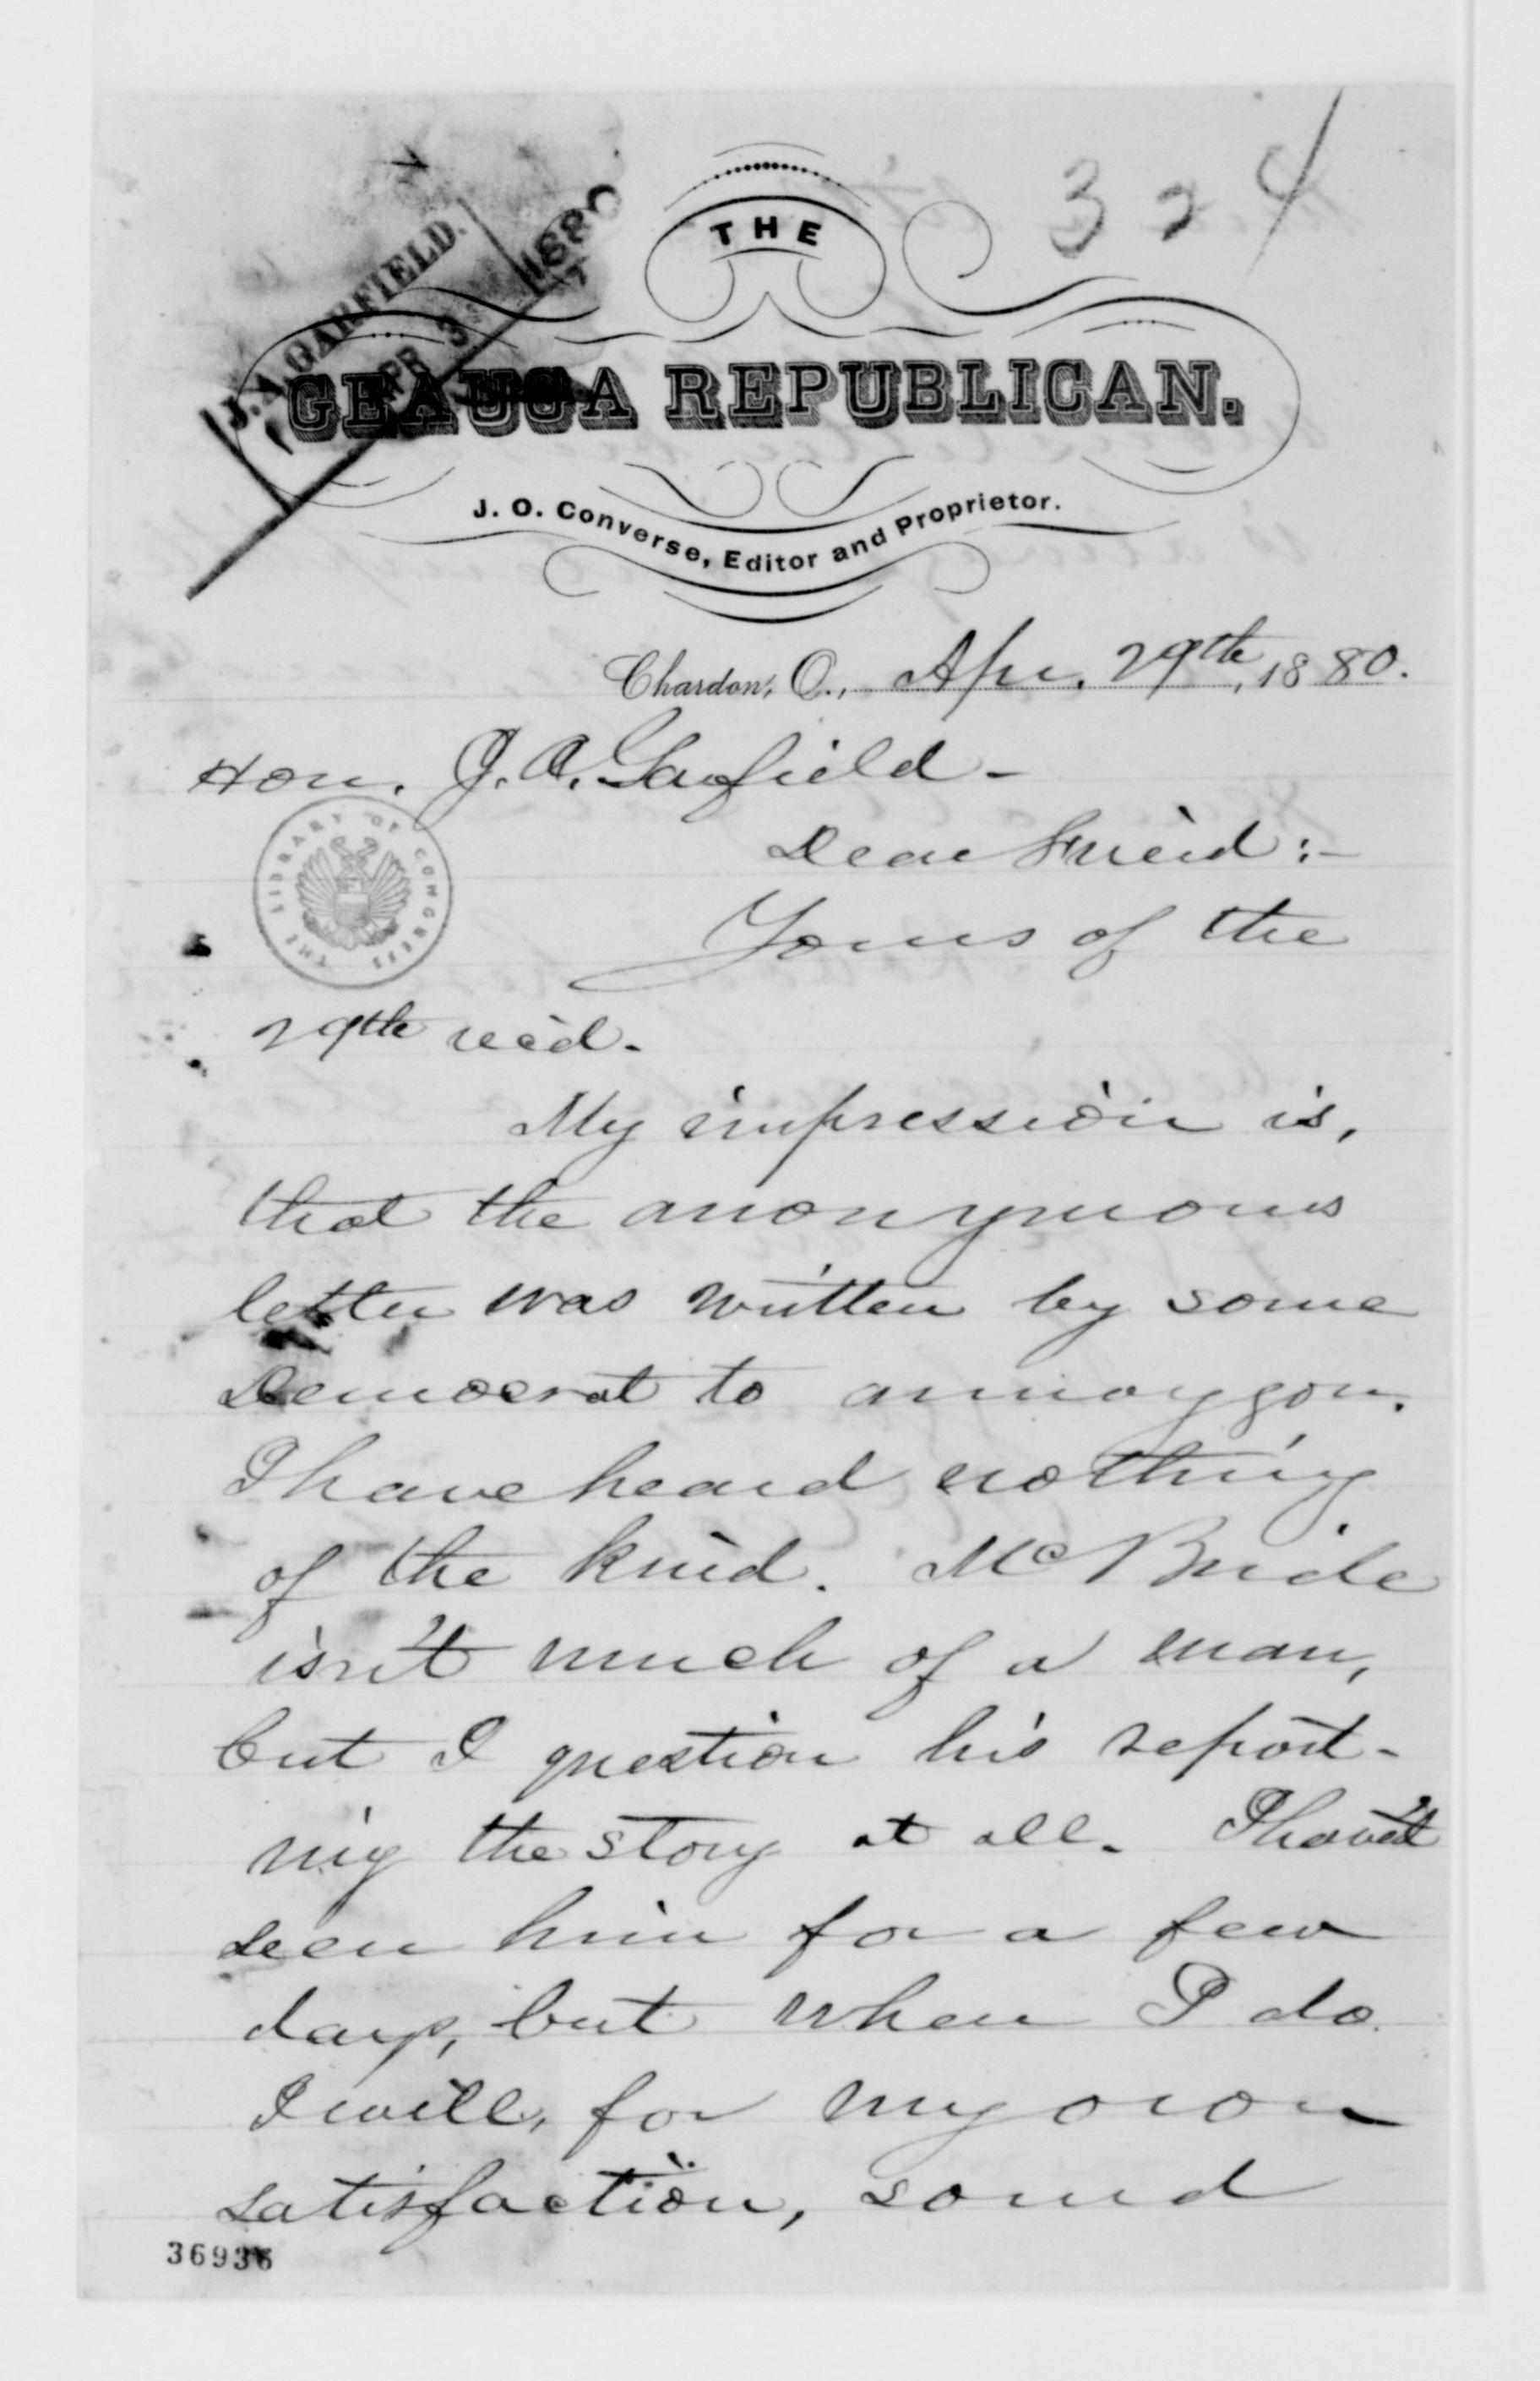 324
J. A. GARFIELD.
APR 3 1880
THE
GEAUGA REPUBLICAN.
J. O. Converse, Editor and Proprietor.
Chardon, O., Apr. 29th, 1880.
Hon. J. A. Garfield -
THE LIBRARY OF CONGRESS
Dear Friend:-
Yours of the
29th rec'd.
My impression is,
that the anonymous
letter was written by some
Democrat to annoy you.
I have heard nothing
of the kind. McBride
isn't much of a man,
but I question his report-
ing the story at all. I haven't
seen him for a few
days, but when I do
I will, for my own
satisfaction, sound
36936